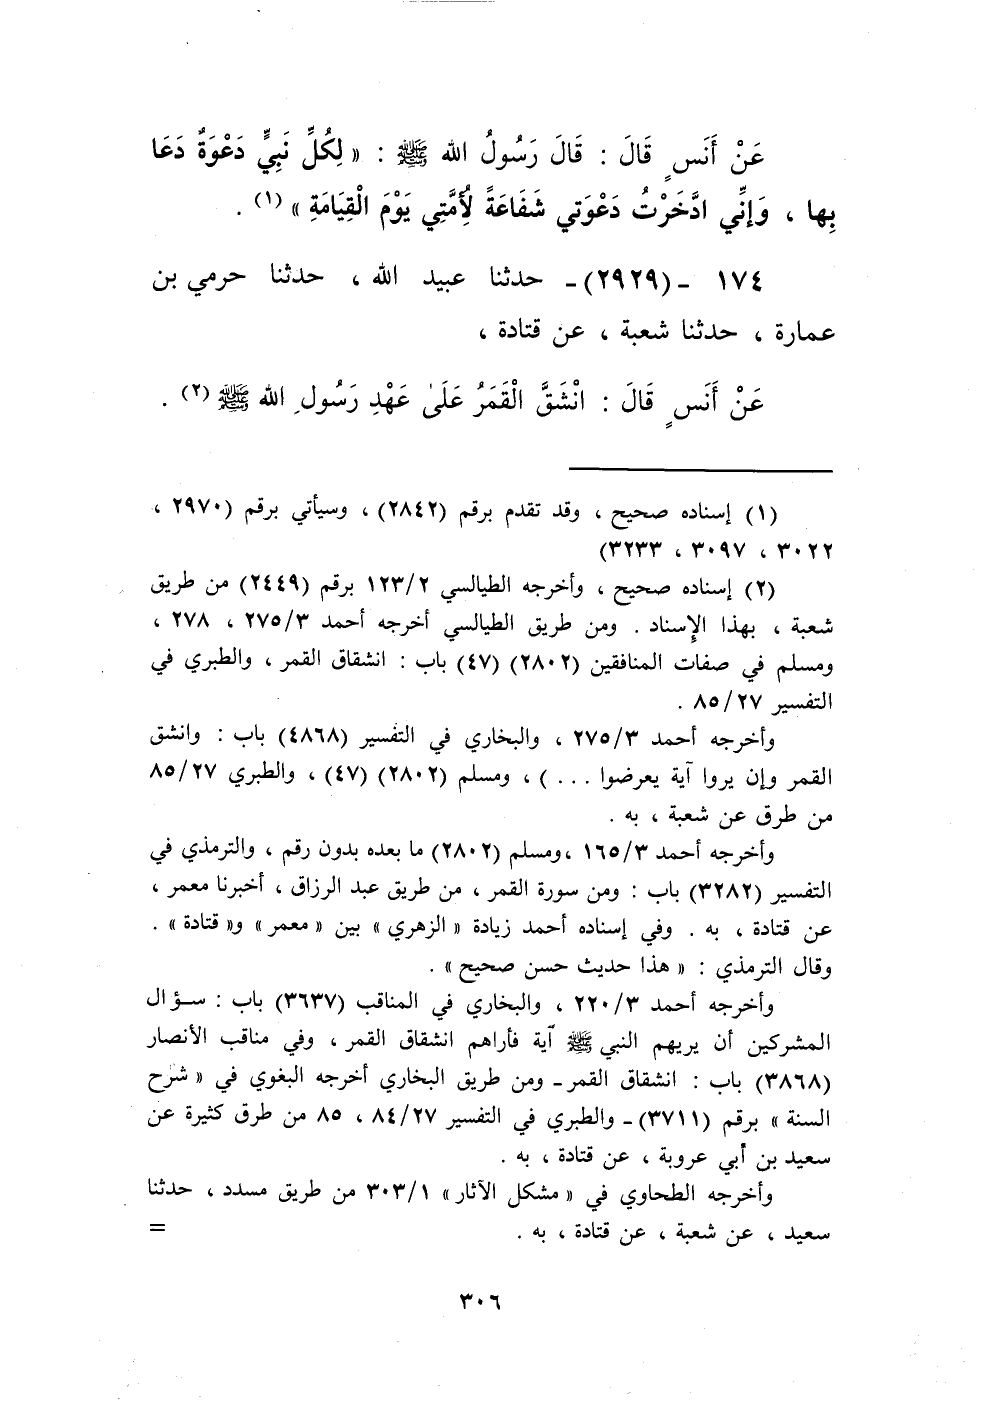 عَنْ أَنَسٍ قَالَ : قَالَ رَسُولُ الله ﷺ : « لِكُلِّ نَبِيٍّ دَعْوَةٌ دَعَا
بِها ، وَإنِّي ادَّخَرْتُ دَعْوَتي شَفَاعَةً لُأمَّتِي يَوْمَ الْقِيَامَةِ »(١) .
١٧٤ - (٢٩٢٩) - حدثنا عبيد الله ، حدثنا حرمي بن
عمارة ، حدثنا شعبة ، عن قتادة ،
عَنْ أَنَسٍ قَالَ : انْشَقَّ الْقَمَرُ عَلَىٰ عَهْدِ رَسُولِ الله ﷺ(٢) .
(١) إسناده صحيح ، وقد تقدم برقم (٢٨٤٢) ، وسيأتي برقم (٢٩٧٠ ،
٣٠٢٢ ، ٣٠٩٧ ، ٣٢٣٣)
(٢) إسناده صحيح ، وأخرجه الطيالسي ١٢٣/٢ برقم (٢٤٤٩) من طريق
شعبة ، بهذا الإسناد . ومن طريق الطيالسي أخرجه أحمد ٢٧٥/٣ ، ٢٧٨ ،
ومسلم في صفات المنافقين (٢٨٠٢) (٤٧) باب : انشقاق القمر ، والطبري في
التفسير ٨٥/٢٧ .
وأخرجه أحمد ٢٧٥/٣ ، والبخاري في التفسير (٤٨٦٨) باب : وانشق
القمر وإن يروا آية يعرضوا . . . ) ، ومسلم (٢٨٠٢) (٤٧) ، والطبري ٨٥/٢٧
من طرق عن شعبة ، به .
وأخرجه أحمد ١٦٥/٣ ،ومسلم (٢٨٠٢) ما بعده بدون رقم ، والترمذي في
التفسير (٣٢٨٢) باب : ومن سورة القمر ، من طريق عبد الرزاق ، أخبرنا معمر ،
عن قتادة ، به . وفي إسناده أحمد زيادة « الزهري » بين « معمر » و« قتادة » .
وقال الترمذي : « هذا حديث حسن صحيح » .
وأخرجه أحمد ٢٢٠/٣ ، والبخاري في المناقب (٣٦٣٧) باب : سؤال
المشركين أن يريهم النبي ﷺ آية فأراهم انشقاق القمر ، وفي مناقب الأنصار
(٣٨٦٨) باب : انشقاق القمر - ومن طريق البخاري أخرجه البغوي في « شرح
السنة » برقم (٣٧١١) - والطبري في التفسير ٨٤/٢٧ ، ٨٥ من طرق كثيرة عن
سعيد بن أبي عروبة ، عن قتادة ، به .
وأخرجه الطحاوي في « مشكل الآثار » ٣٠٣/١ من طريق مسدد ، حدثنا
سعيد ، عن شعبة ، عن قتادة ، به . =
٣٠٦